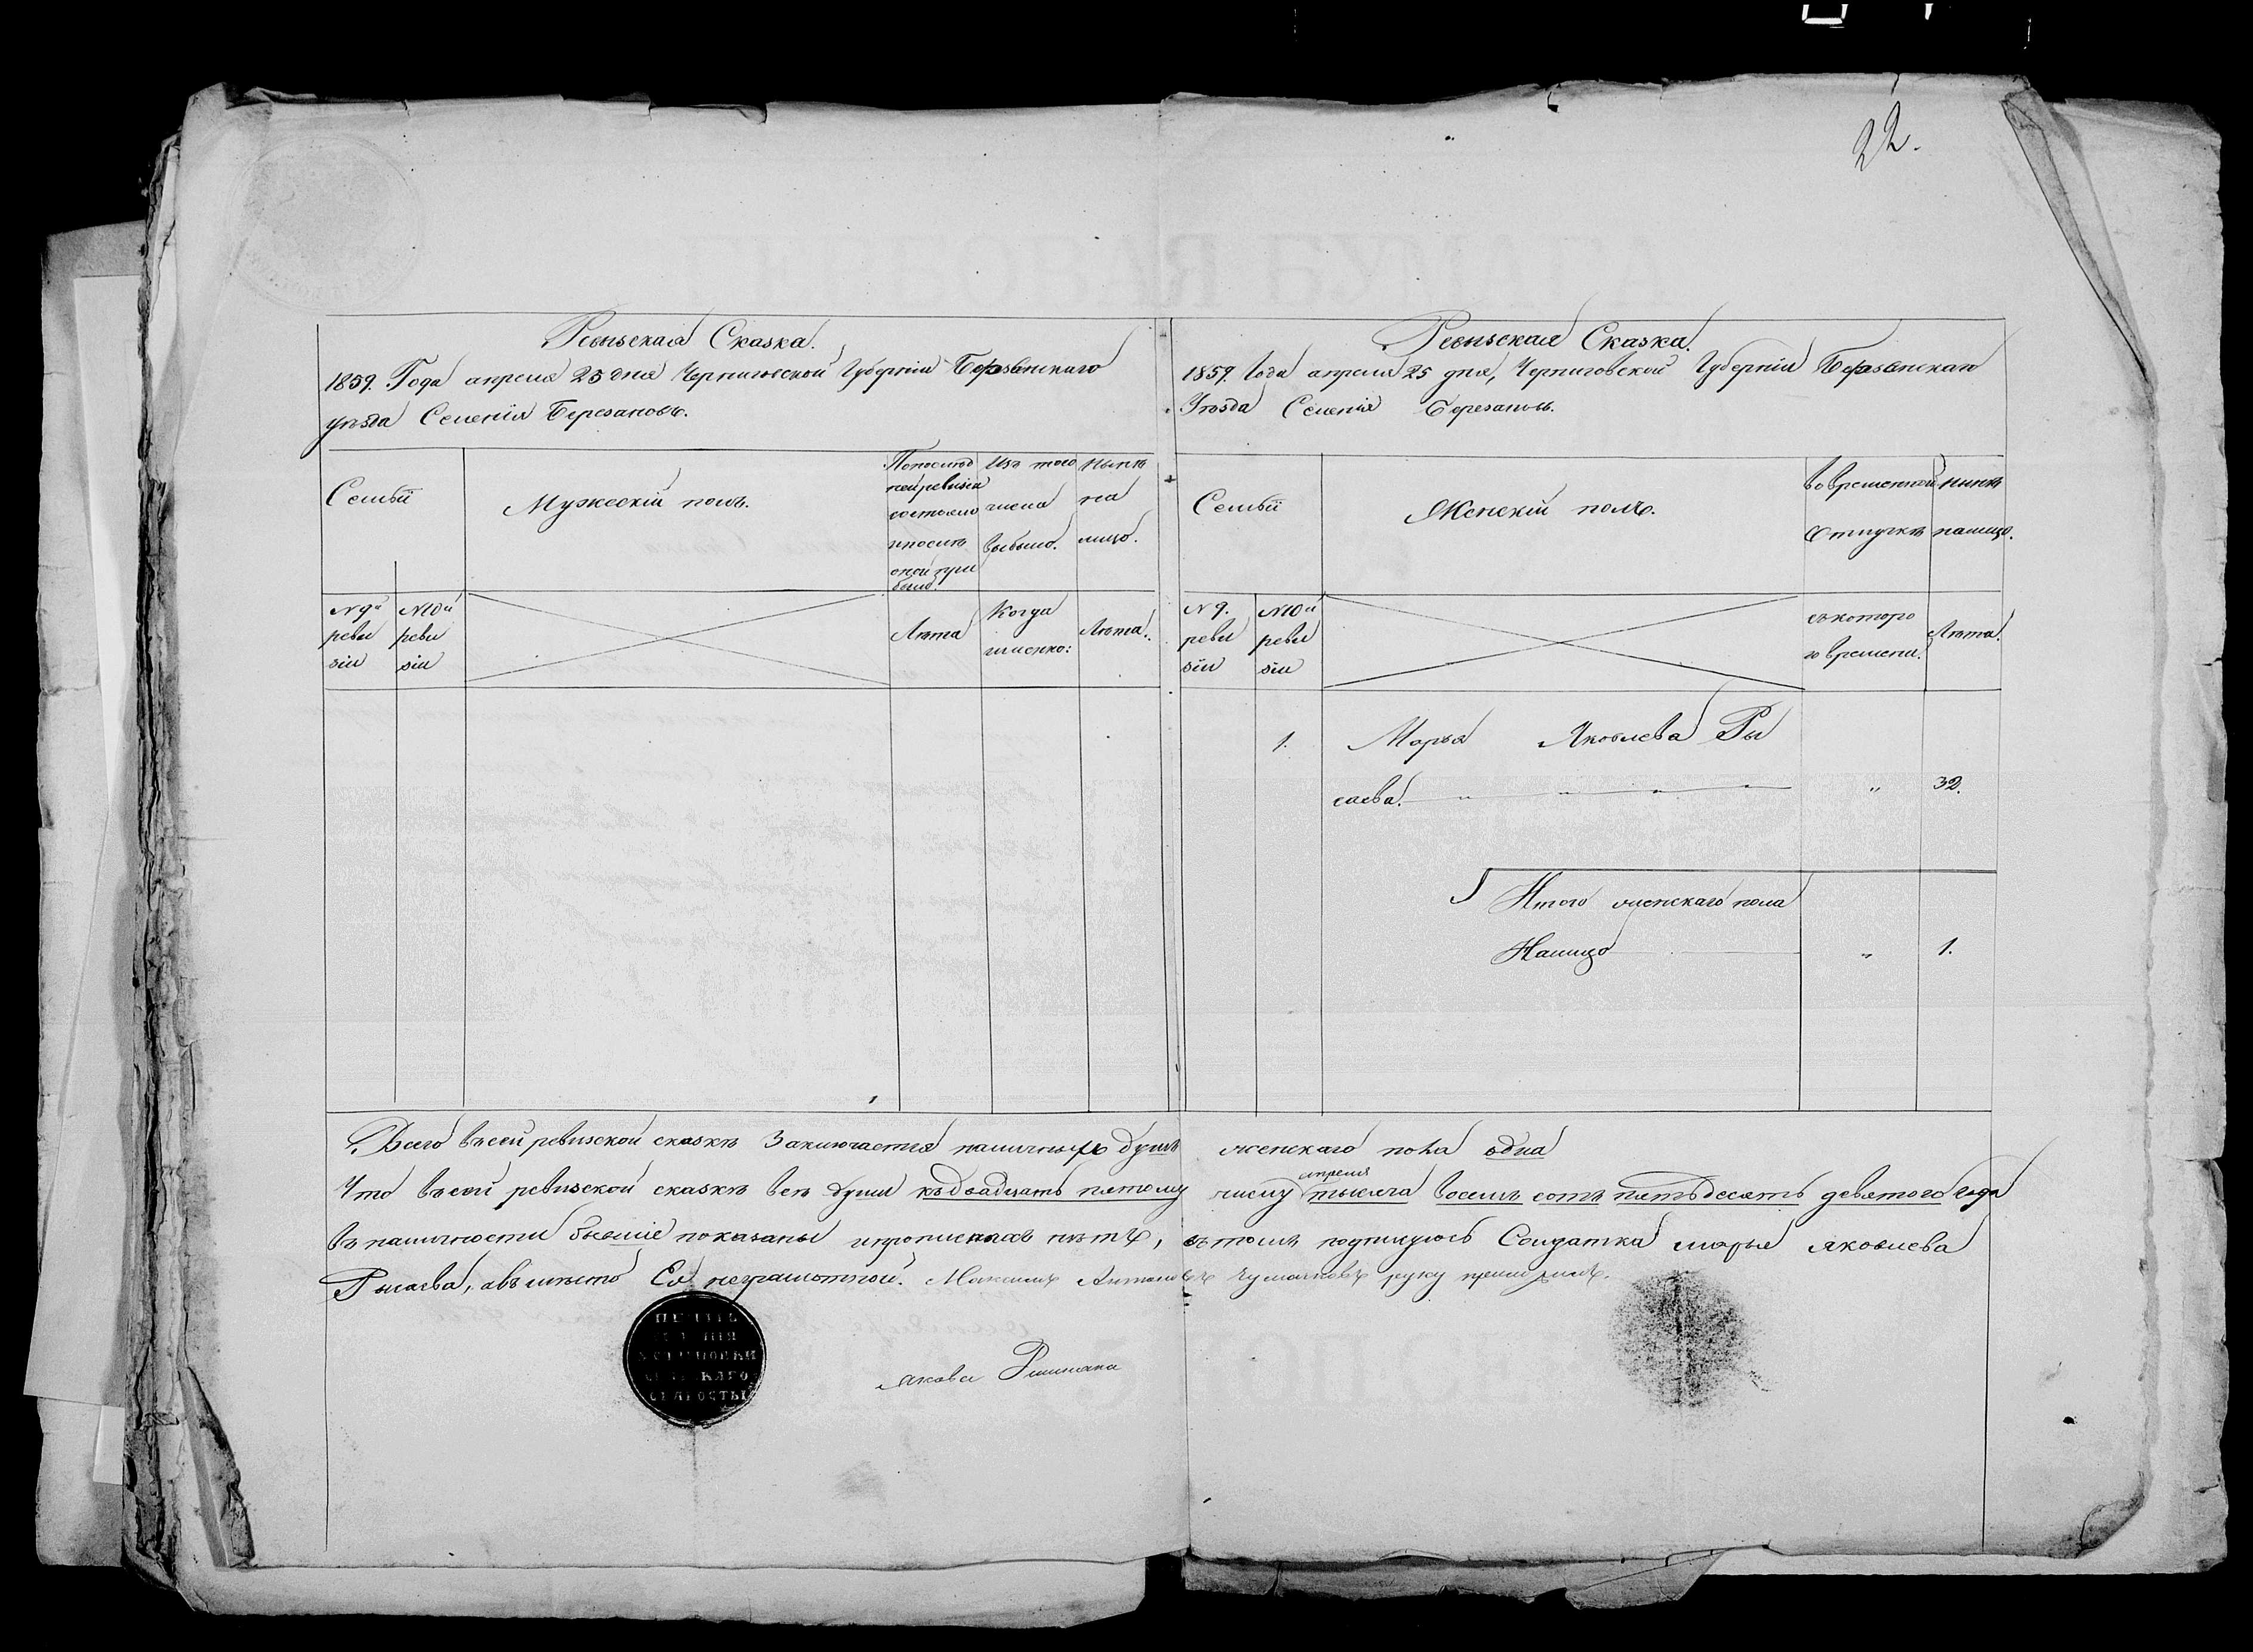 22.
Ревиская Сказка.
1859. Года апреля 25 дня Черниговской Губерніи Борзенскаго
уезда Селенія Березановъ.
Семьи
Мужескій полъ.
По послѣд
ней ревизіи
состояло
и послѣ
оной при
было.
Изъ того
числа
выбыло.
Нынѣ
на
лицо.
N 9й
реви
зіи
N 10й
реви
зіи
Лѣта
Когда
именно:
Лѣта.
Ревиская Сказка.
1859. Года апреля 25 дня, Черниговской Губерніи Борзенскаго
Уѣзда Селенія Березановъ.
Семьи
Женскій полъ.
Во временной
Отлучкѣ
Нынѣ
налицо.
N 9.
реви
зіи
N 10й
реви
зіи
съ которо
го времени.
Лѣта.
1. Марья Яковлева Ры
саева. " 32.
Итого женскаго пола
Налицо " 1.
Всего въ сей ревизской сказкѣ Заключается наличныхъ душъ женскаго пола одна
апреля
Что въ сей ревизской сказкѣ всѣ души къ двадцать пятому числу тысяча восемь сотъ пятьдесятъ девятого года
въ наличности бывшіе показаны и прописныхъ нѣтъ, въ томъ подпишуюсь Солдатка марья яковлева
Рысаева, а вместо Ея неграмотной. Максимъ Антоновъ руку приложилъ.
ПЕЧАТЬ
СТАРОСТЫ
якова